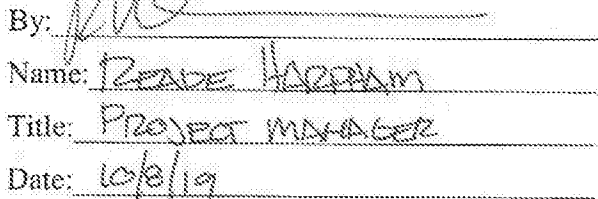 By:
Name: READE HARPHAM
Title: PROJECT MANAGER
Date: 10/8/19